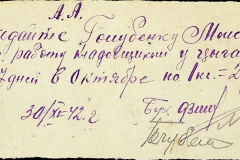 А.А.
Выдайте Голубенку Моис
работу кладовщиком у цыган
7 дней в Октябре по 1 кг. = 2
30/XI-42 г
Бух